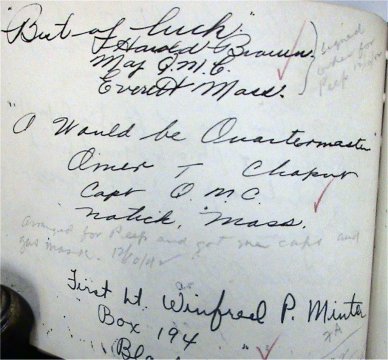 "Best of luck"
J Harold Brown.
Maj Q.M.C.
Everett Mass.
Signed
order for
Peep
"A Would be Quartermaster"
Omer T Chaput
Capt Q.M.C.
Natick, Mass.
Arranged for Peep and got me caps and
gas mask. 12/10/42
First Lt. Winfred P. Minter
Box 194